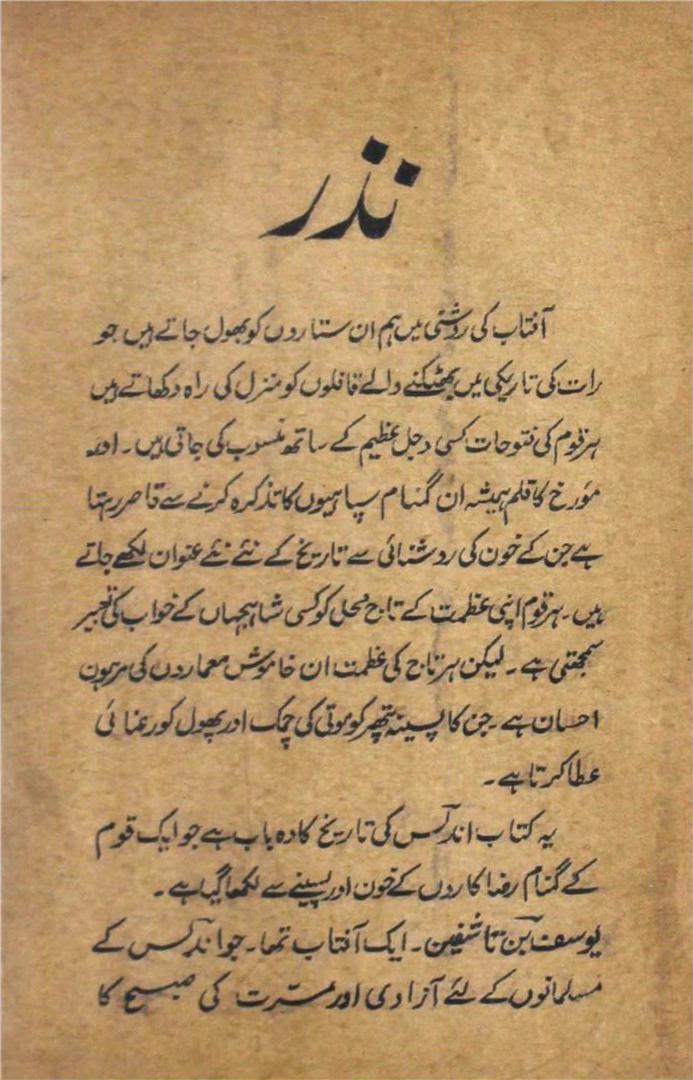 نذر
آفتاب کی روشنی میں ہم ان ستاروں کو بھول جاتے ہیں جو
رات کی تاریکی میں بھٹکنے والے قافلوں کو منزل کی راہ دکھاتے ہیں
ہر قوم کی فتوحات کسی رجل عظیم کے ساتھ منسوب کی جاتی ہیں۔ اور
مؤرخ کا قلم ہمیشہ ان گمنام سپاہیوں کا تذکرہ کرنے سے قاصر رہتا
ہے جن کے خون کی روشنائی سے تاریخ کے نئے نئے عنوان لکھے جاتے
ہیں۔ ہر قوم اپنی عظمت کے تاج محل کو کسی شاہجہاں کے خواب کی تعبیر
سمجھتی ہے۔ لیکن ہر تاج کی عظمت ان خاموش معماروں کی مرہون
احسان ہے۔ جن کا پسینہ پتھر کو موتی کی چمک اور پھول کو رعنائی
عطا کرتا ہے۔
یہ کتاب اندلس کی تاریخ کا وہ باب ہے جو ایک قوم
کے گمنام رضاکاروں کے خون اور پسینے سے لکھا گیا ہے۔
یوسف بن تاشفین۔ ایک آفتاب تھا۔ جو اندلس کے
مسلمانوں کے لئے آزادی اور مسرت کی صبح کا